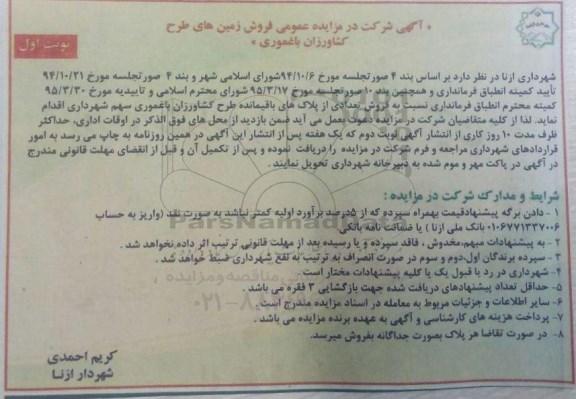 « آگهی شرکت در مزایده عمومی فروش زمین های طرح
کشاورزان باغموری »
نوبت اول
شهرداری ازنا در نظر دارد بر اساس بند ۴ صورتجلسه مورخ ۹۴/۱۰/۶ شورای اسلامی شهر و بند ۴ صورتجلسه مورخ ۹۴/۱۰/۲۱
تأیید کمیته انطباق فرمانداری و همچنین بند ۱۰ صورتجلسه مورخ ۹۵/۳/۱۷ شورای محترم اسلامی و تاییدیه مورخ ۹۵/۳/۳۰
کمیته محترم انطباق فرمانداری نسبت به فروش تعدادی از پلاک های باقیمانده طرح کشاورزان باغموری سهم شهرداری اقدام
نماید. لذا از کلیه متقاضیان شرکت در مزایده دعوت بعمل می آید ضمن بازدید از محل های فوق الذکر در اوقات اداری، حداکثر
ظرف مدت ۱۰ روز کاری از انتشار آگهی نوبت دوم که یک هفته پس از انتشار این آگهی در همین روزنامه به چاپ می رسد به امور
قراردادهای شهرداری مراجعه و فرم شرکت در مزایده را دریافت نموده و پس از تکمیل آن و قبل از انقضای مهلت قانونی مندرج
در آگهی در پاکت مهر و موم شده به دبیرخانه شهرداری تحویل نمایند.
شرایط و مدارک شرکت در مزایده :
۱- دادن برگه پیشنهادقیمت بهمراه سپرده که از ۵درصد برآورد اولیه کمتر نباشد به صورت نقد (واریز به حساب
۰۱۰۶۷۷۱۳۳۷۰۰۶ بانک ملی ازنا ) یا ضمانت نامه بانکی
۲- به پیشنهادات مبهم،مخدوش ، فاقد سپرده و یا رسیده بعد از مهلت قانونی ترتیب اثر داده نخواهد شد .
۳- سپرده برندگان اول،دوم و سوم در صورت انصراف به ترتیب به نفع شهرداری ضبط خواهد شد .
۴- شهرداری در رد یا قبول یک یا کلیه پیشنهادات مختار است .
۵- حداقل تعداد پیشنهادهای دریافت شده جهت بازگشایی ۳ فقره می باشد .
۶- سایر اطلاعات و جزئیات مربوط به معامله در اسناد مزایده مندرج است .
۷- پرداخت هزینه های کارشناسی و آگهی به عهده برنده مزایده می باشد .
۸- در صورت تقاضا هر پلاک بصورت جداگانه بفروش میرسد.
کریم احمدی
شهردار ازنا
ParsNamadData